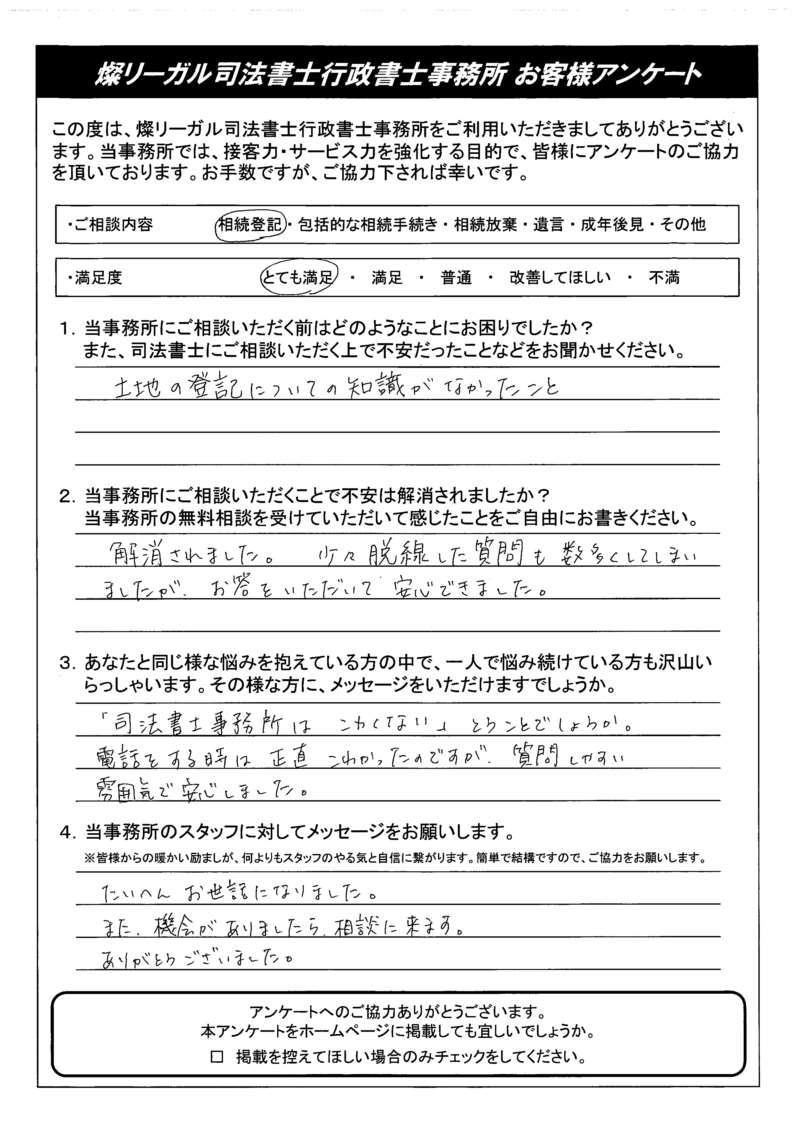 燦リーガル司法書士行政書士事務所 お客様アンケート
この度は、燦リーガル司法書士行政書士事務所をご利用いただきましてありがとうござい
ます。当事務所では、接客力・サービス力を強化する目的で、皆様にアンケートのご協力
を頂いております。お手数ですが、ご協力下されば幸いです。
・ご相談内容 相続登記・包括的な相続手続き・相続放棄・遺言・成年後見・その他
・満足度 とても満足 ・ 満足 ・ 普通 ・ 改善してほしい ・ 不満
1. 当事務所にご相談いただく前はどのようなことにお困りでしたか?
また、司法書士にご相談いただく上で不安だったことなどをお聞かせください。
土地の登記についての知識がなかったこと
2. 当事務所にご相談いただくことで不安は解消されましたか?
当事務所の無料相談を受けていただいて感じたことをご自由にお書きください。
解消されました。 少々脱線した質問も数多くしてしまい
ましたが、お答をいただいて安心できました。
3. あなたと同じ様な悩みを抱えている方の中で、一人で悩み続けている方も沢山い
らっしゃいます。その様な方に、メッセージをいただけますでしょうか。
「司法書士事務所は こわくない」ということでしょうか。
電話をする時は正直こわかったのですが、質問しやすい
雰囲気で安心しました。
4. 当事務所のスタッフに対してメッセージをお願いします。
※皆様からの暖かい励ましが、何よりもスタッフのやる気と自信に繋がります。簡単で結構ですので、ご協力をお願いします。
たいへんお世話になりました。
また、機会がありましたら、相談に来ます。
ありがとうございました。
アンケートへのご協力ありがとうございます。
本アンケートをホームページに掲載しても宜しいでしょうか。
□ 掲載を控えてほしい場合のみチェックをしてください。